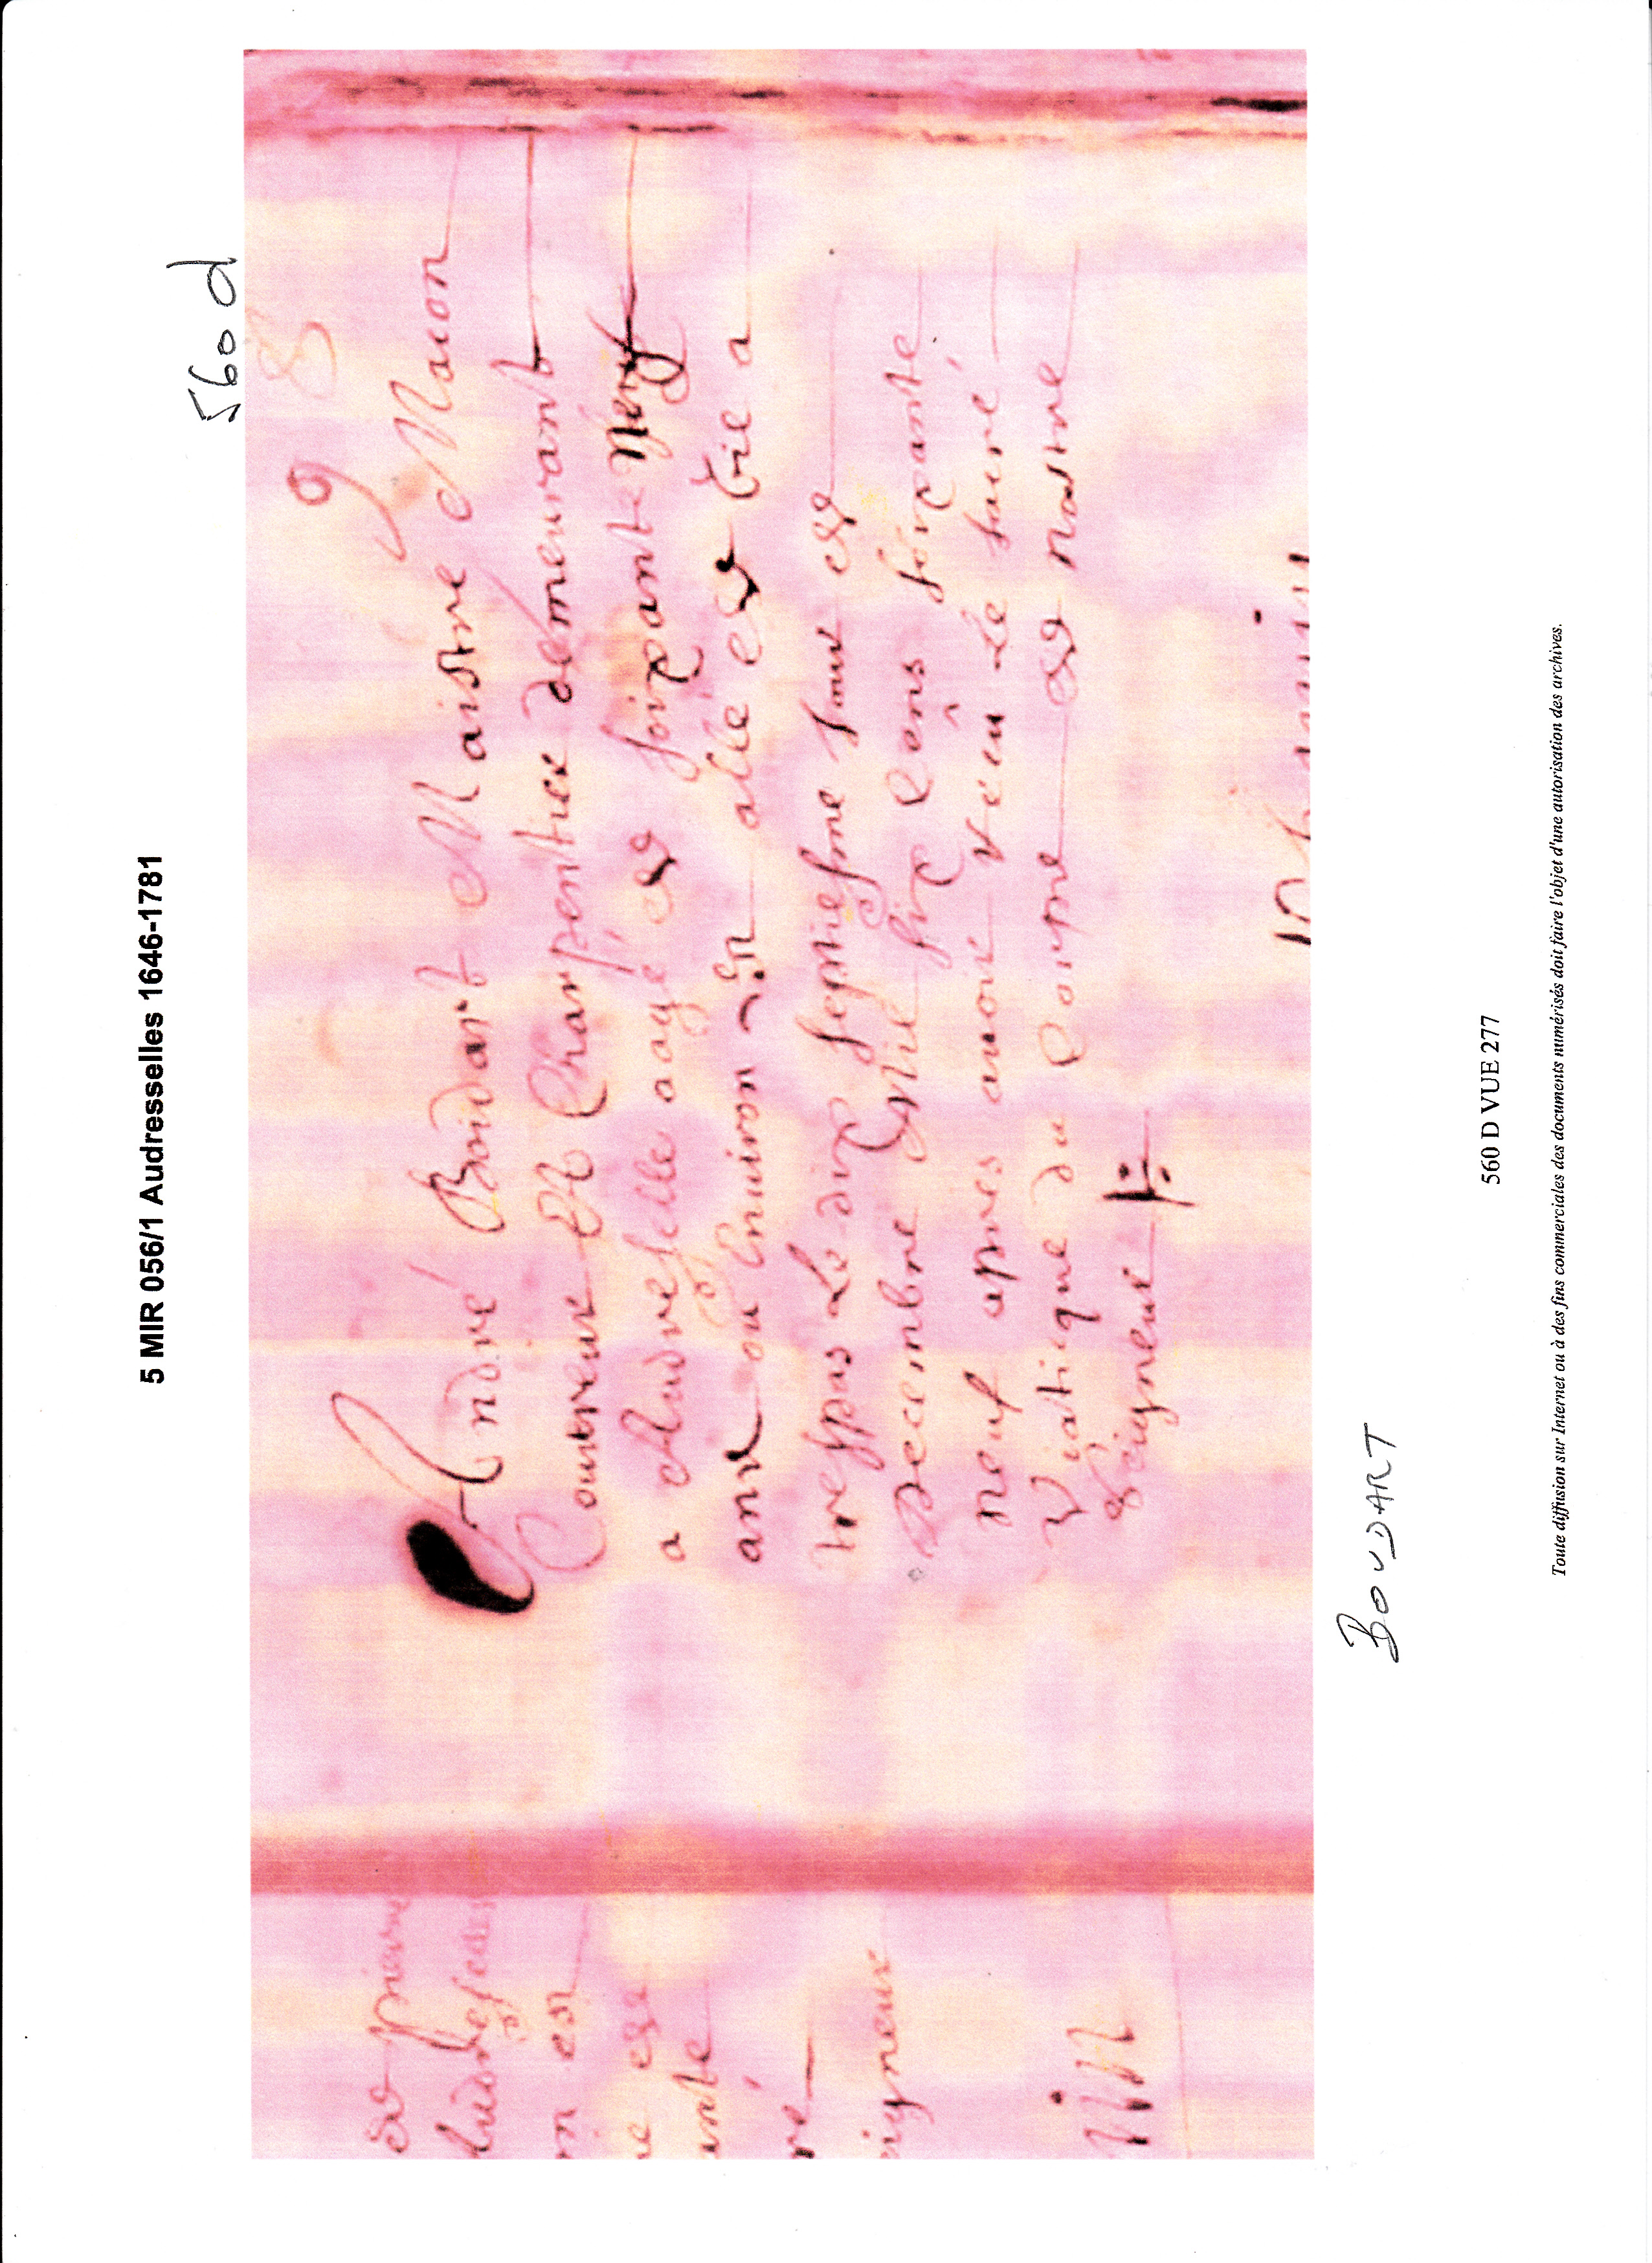 5 MIR 056/1 Audresselles 1646-1781
560 d
André Boidart Maistre Macon
Couvreur Et Charpentier demeurant
a Audreselle aagé de soixante Neuf
ans ou Enuiron est allé de vie a
trespas Le dix septiesme Jour de
Decembre Mil six Cens soixante
neuf apres auoir receu Le sacré
Viatique du Corps de nostre
Seigneur
BOUDART
560 D VUE 277
Toute diffusion sur Internet ou à des fins commerciales des documents numérisés doit faire l'objet d'une autorisation des archives.